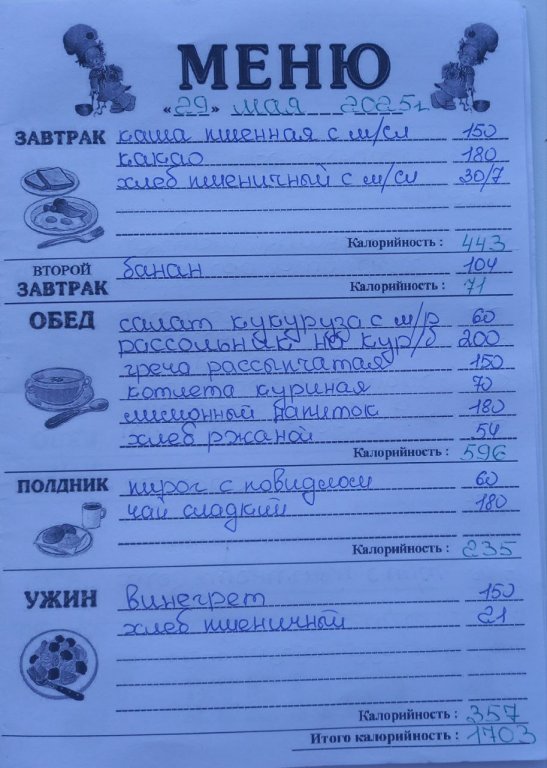 МЕНЮ
«29» мая 2025г
ЗАВТРАК каша пшенная с м/сл 150
какао 180
хлеб пшеничный с м/сл 30/7
Калорийность : 443
ВТОРОЙ ЗАВТРАК банан 104
Калорийность : 71
ОБЕД салат кукуруза с м/р 60
рассольник на кур/б 200
греча рассыпчатая 150
котлета куриная 70
лимонный напиток 180
хлеб ржаной 54
Калорийность : 596
ПОЛДНИК пирог с повидлом 60
чай сладкий 180
Калорийность : 235
УЖИН винегрет 150
хлеб пшеничный 21
Калорийность : 357
Итого калорийность : 1703